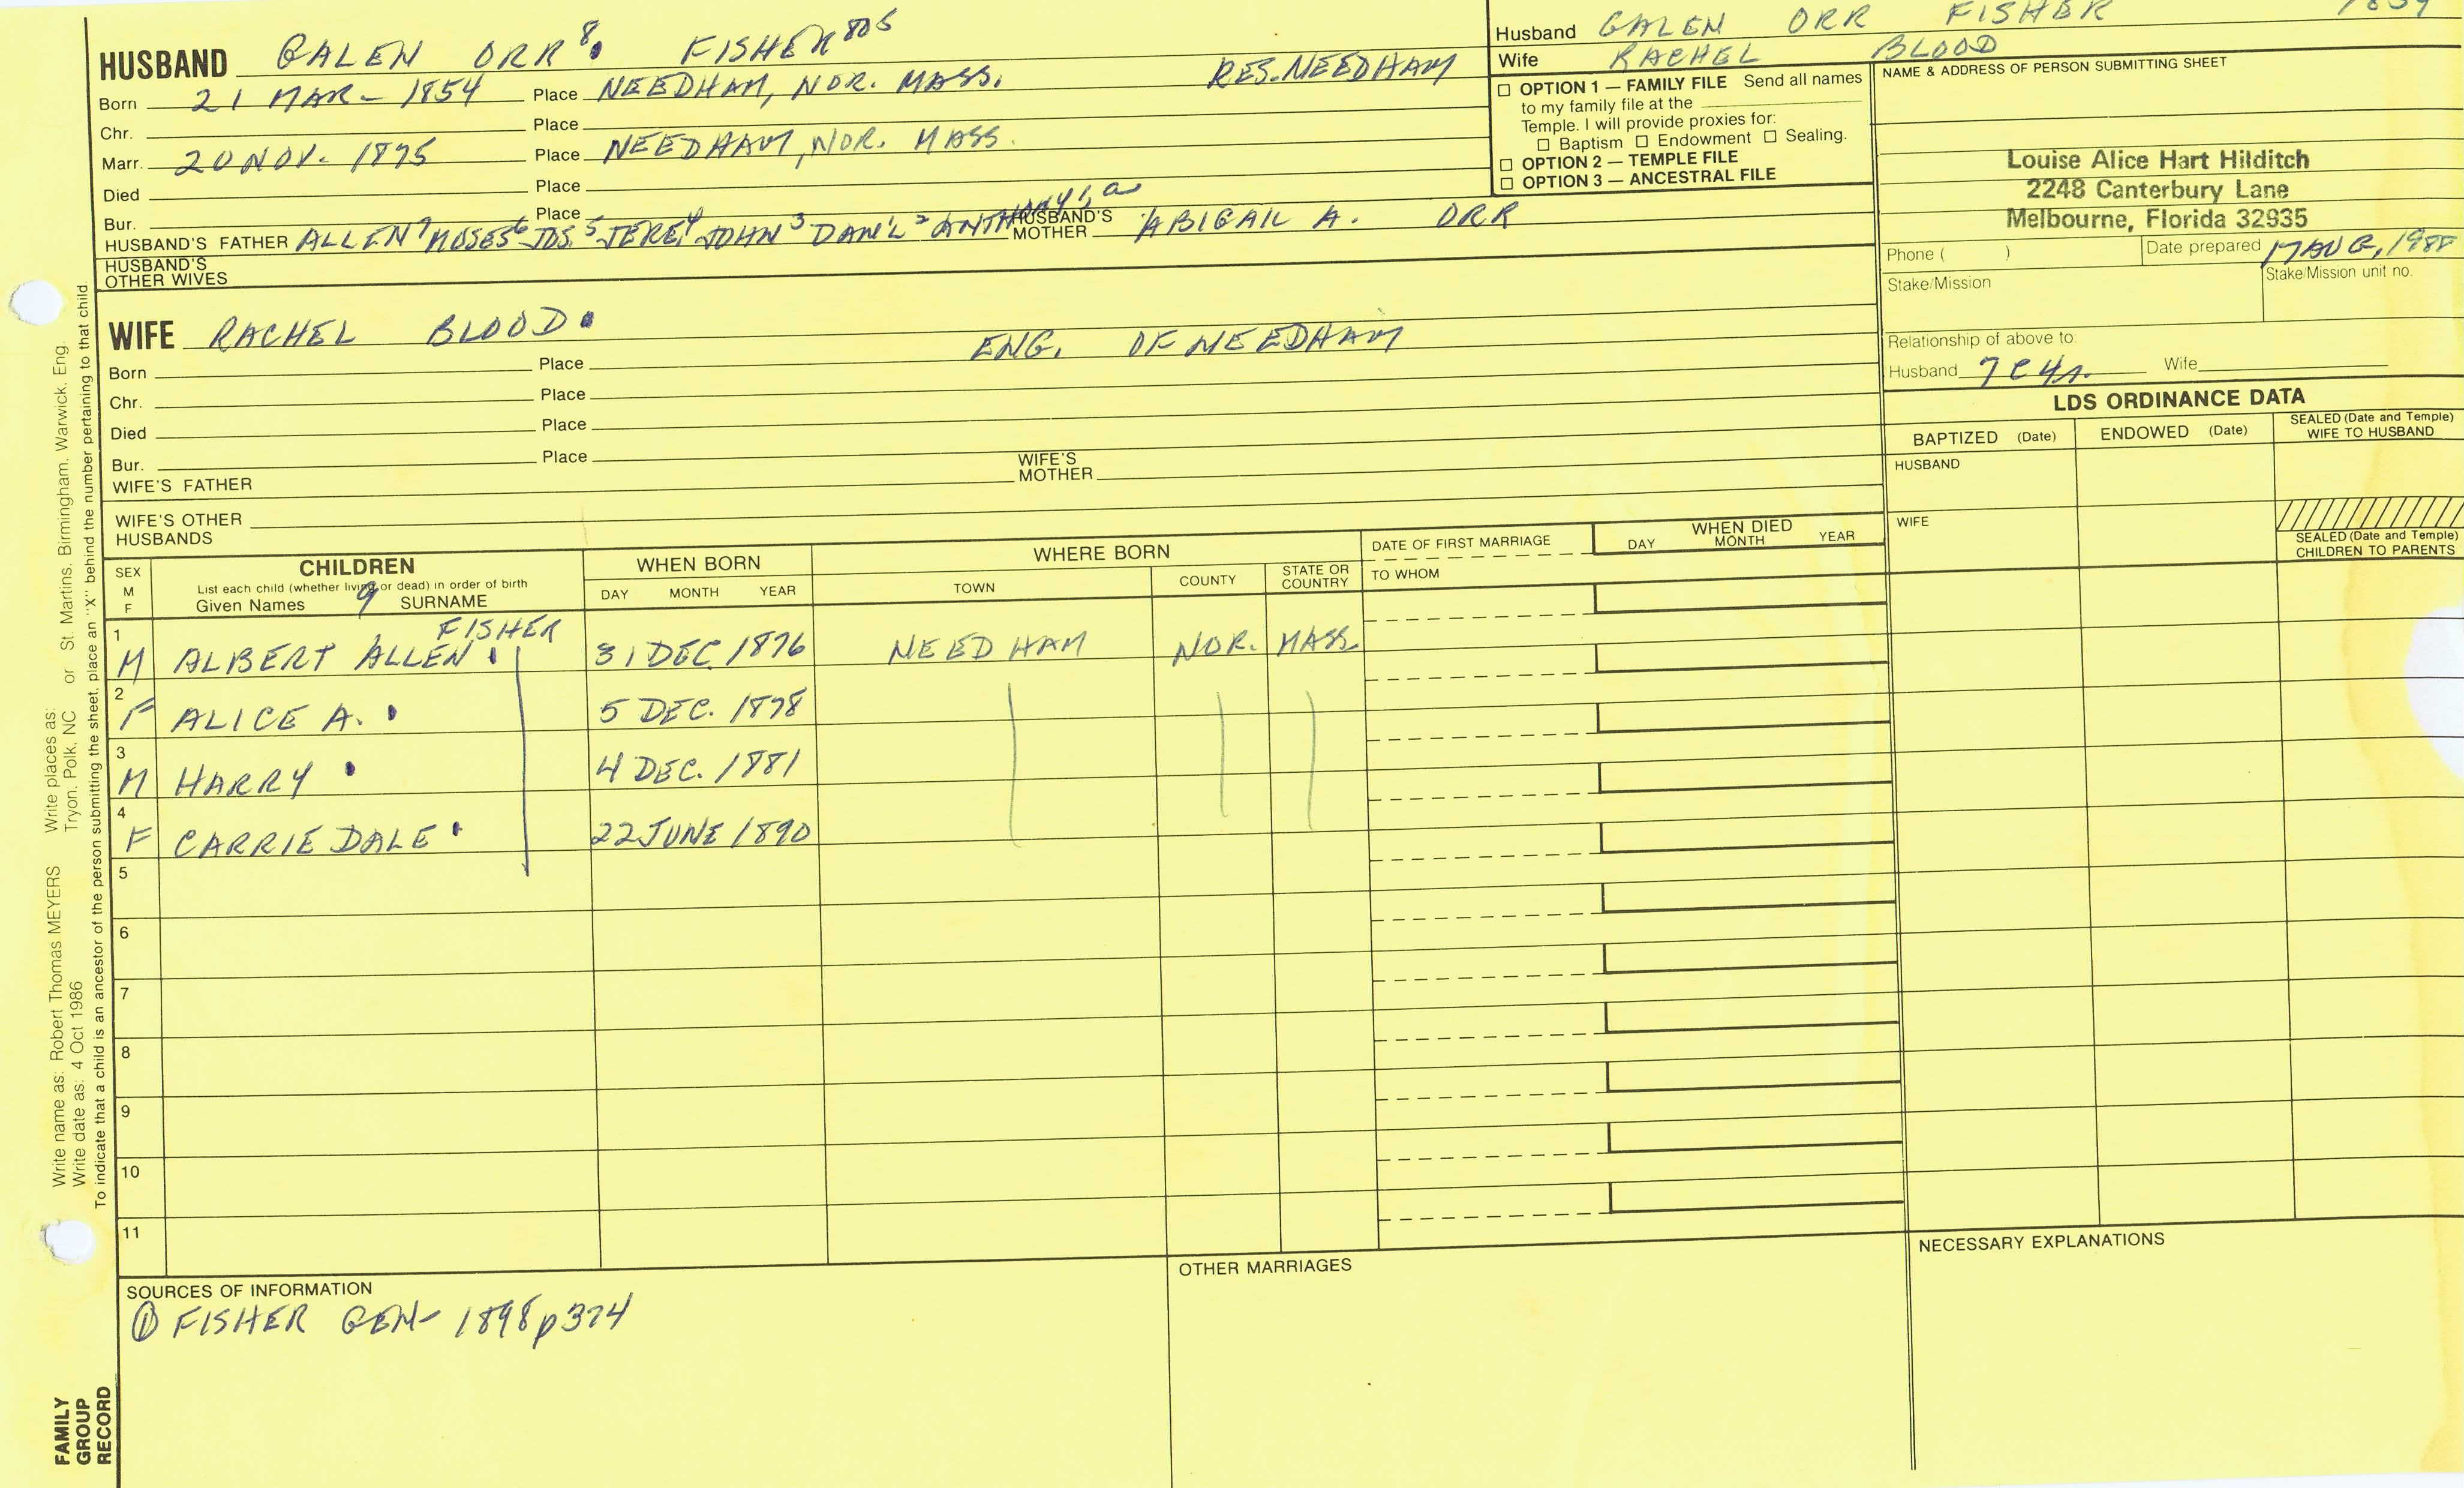 HUSBAND GALEN ORR 8. FISHER 805
Born 21 MAR- 1854 Place NEEDHAM, NOR. MASS. RES. NEEDHAM
Chr. Place
Marr. 20 NOV. 1875 Place NEEDHAM, NOR. MASS.
Died Place
Bur. Place
HUSBAND'S FATHER ALLEN 7 MOSES 6 JOS. 5 JERE. 4 JOHN 3 DAN'L 2 ANTHONY 1, a HUSBAND'S MOTHER ABIGAIL A. ORR
HUSBAND'S OTHER WIVES
Husband GALEN ORR FISHER
Wife RACHEL BLOOD
☐ OPTION 1 — FAMILY FILE Send all names
to my family file at the
Temple. I will provide proxies for:
☐ Baptism ☐ Endowment ☐ Sealing.
☐ OPTION 2 — TEMPLE FILE
☐ OPTION 3 — ANCESTRAL FILE
NAME & ADDRESS OF PERSON SUBMITTING SHEET
Louise Alice Hart Hilditch
2248 Canterbury Lane
Melbourne, Florida 32935
Phone ( ) Date prepared 17 AUG, 1988
Stake/Mission Stake/Mission unit no.
Relationship of above to:
Husband 7C4r. Wife
WIFE RACHEL BLOOD. ENG. OF NEEDHAM
Born Place
Chr. Place
Died Place
Bur. Place
WIFE'S FATHER WIFE'S MOTHER
WIFE'S OTHER HUSBANDS
LDS ORDINANCE DATA
BAPTIZED (Date) ENDOWED (Date) SEALED (Date and Temple) WIFE TO HUSBAND
HUSBAND
WIFE
SEALED (Date and Temple) CHILDREN TO PARENTS
SEX M F
CHILDREN
List each child (whether living or dead) in order of birth
Given Names 9 SURNAME
WHEN BORN
DAY MONTH YEAR
WHERE BORN
TOWN COUNTY STATE OR COUNTRY
DATE OF FIRST MARRIAGE
TO WHOM
WHEN DIED
DAY MONTH YEAR
1 M ALBERT ALLEN FISHER 31 DEC. 1876 NEEDHAM NOR. MASS.
2 F ALICE A. 5 DEC. 1878
3 M HARRY 4 DEC. 1881
4 F CARRIE DALE 22 JUNE 1890
5
6
7
8
9
10
11
SOURCES OF INFORMATION
① FISHER GEN- 1898 p374
OTHER MARRIAGES
NECESSARY EXPLANATIONS
Write name as: Robert Thomas MEYERS Write places as:
Write date as: 4 Oct 1986 Tryon, Polk, NC or St. Martins, Birmingham, Warwick, Eng.
To indicate that a child is an ancestor of the person submitting the sheet, place an "X" behind the number pertaining to that child.
FAMILY
GROUP
RECORD